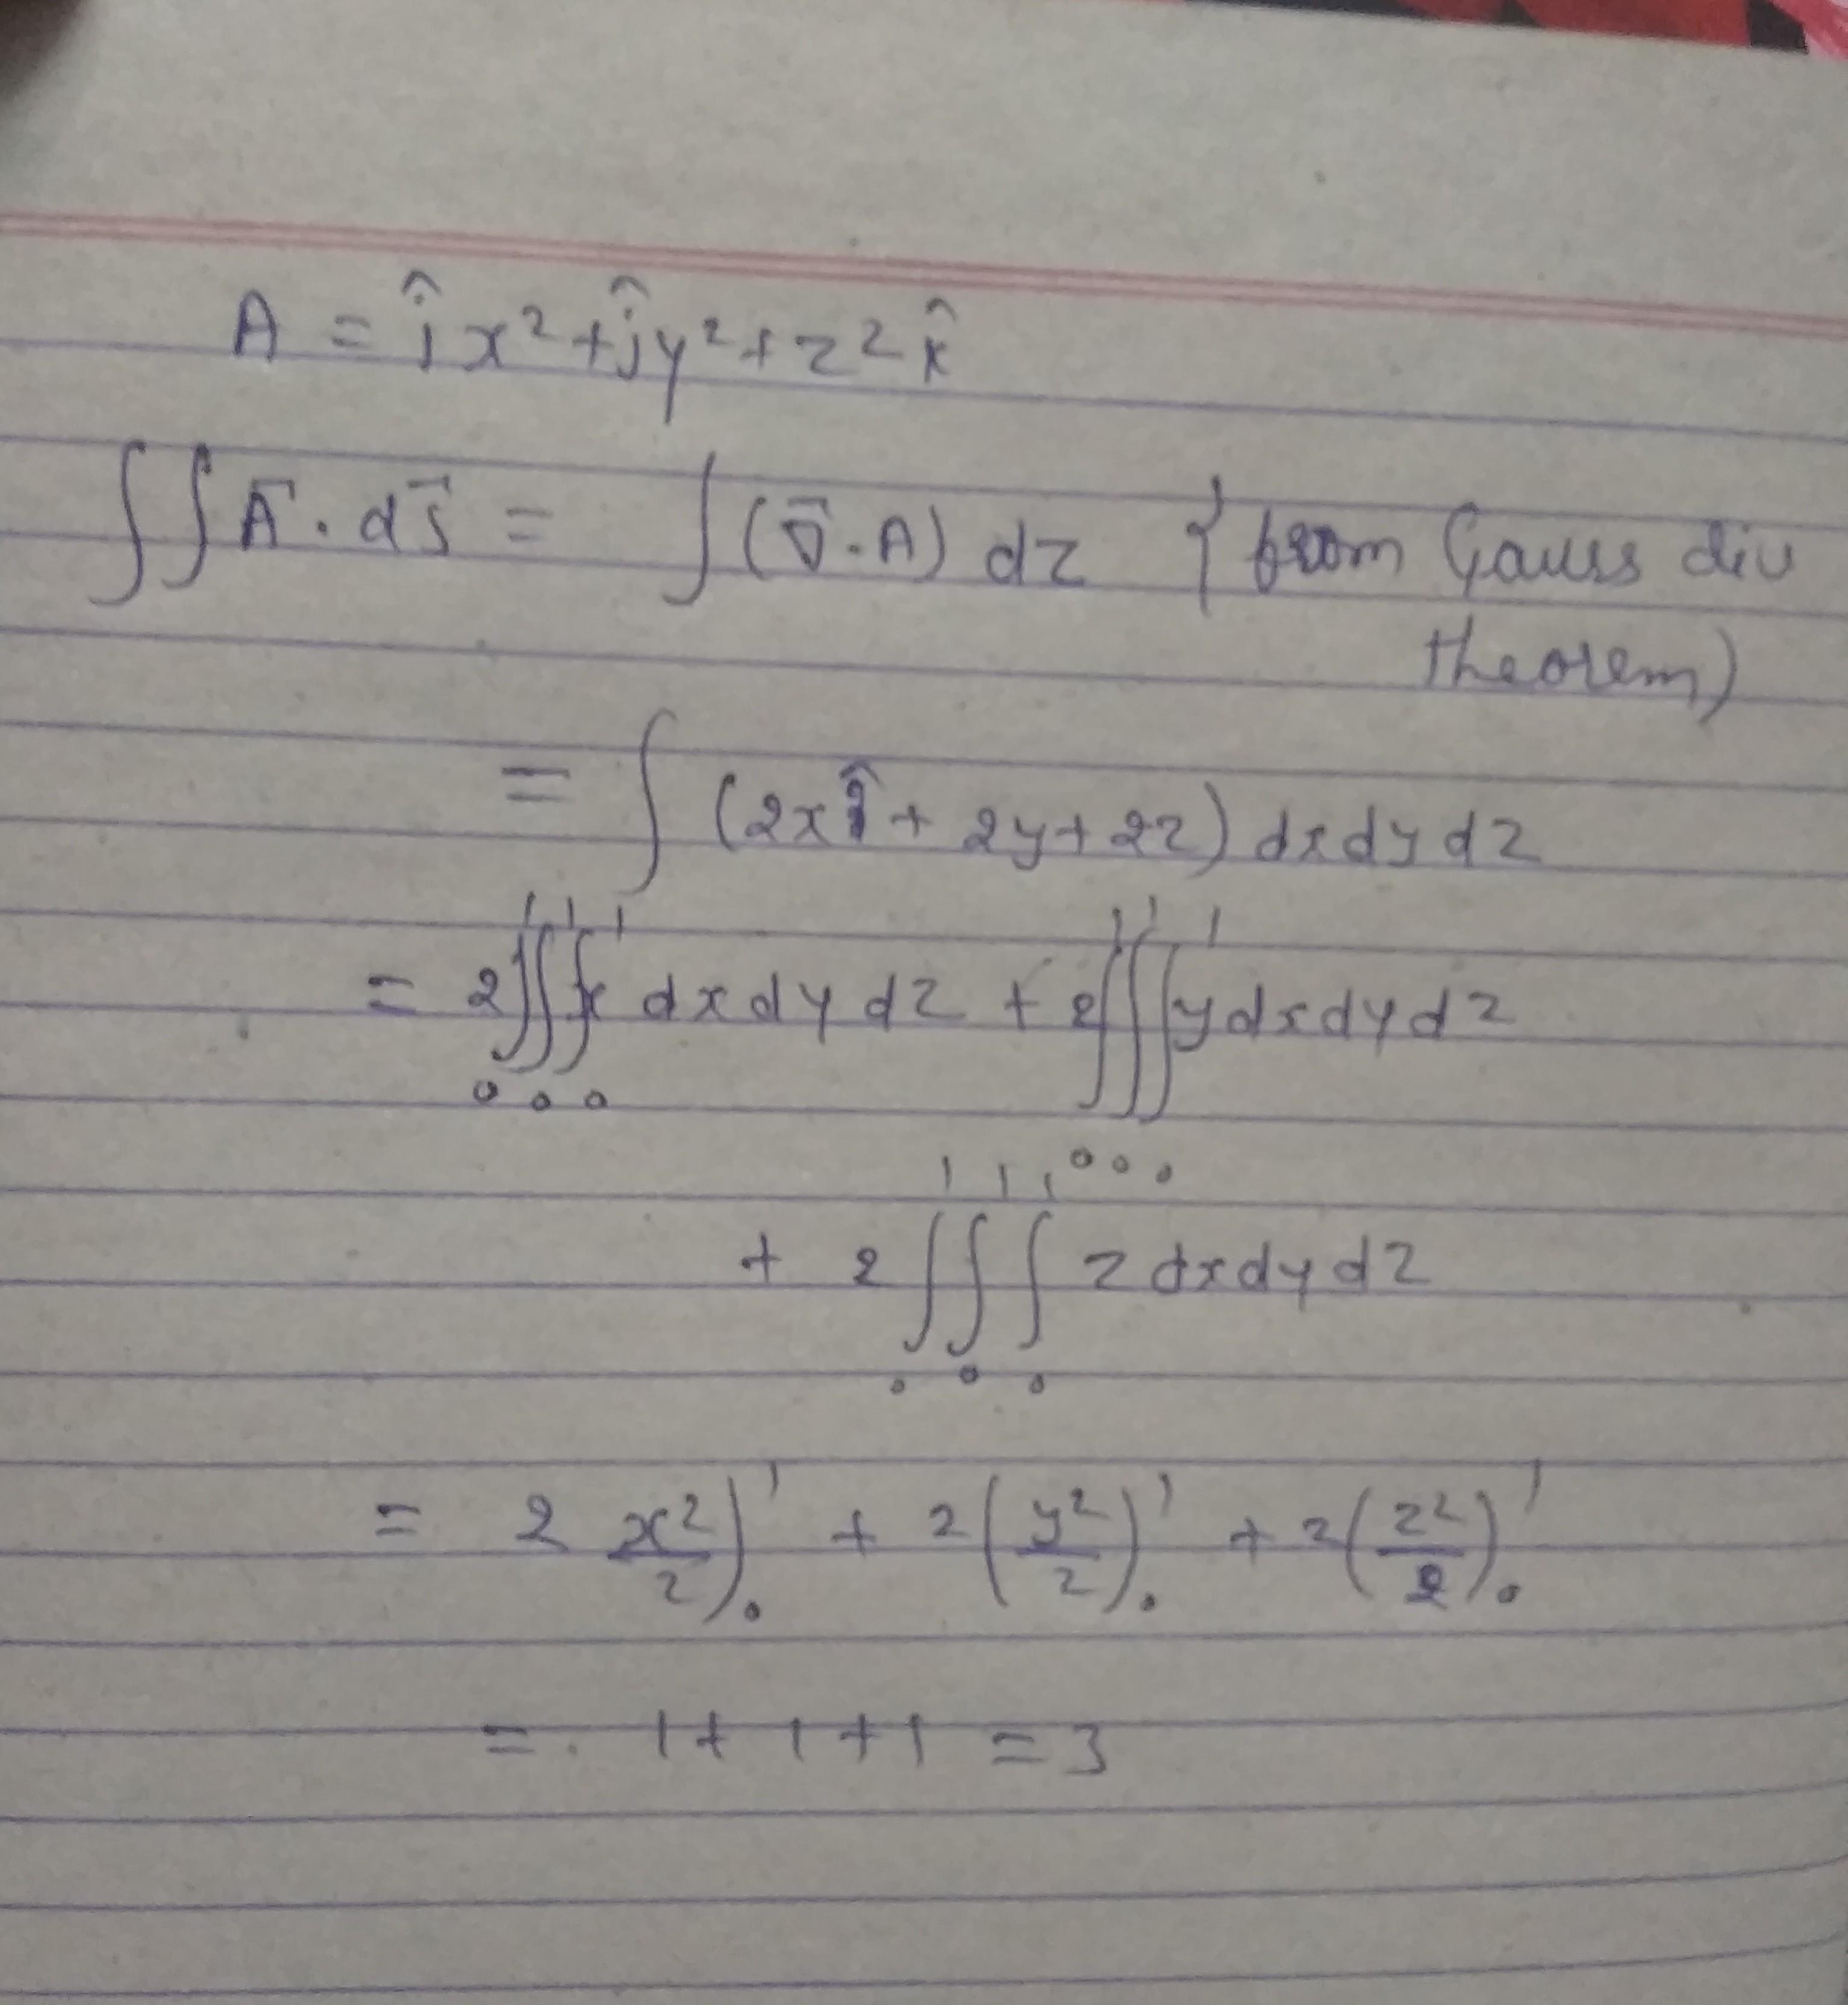 A = î x² + ĵ y² + z² k̂
∫∫ A⃗ . ds⃗ = ∫ (∇⃗ . A) dz { from Gauss div
theorem)
= ∫ (2x + 2y + 2z) dx dy dz
= 2 ∫₀¹ ∫₀¹ ∫₀¹ x dx dy dz + 2 ∫₀¹ ∫₀¹ ∫₀¹ y dx dy dz
+ 2 ∫₀¹ ∫₀¹ ∫₀¹ z dx dy dz
= 2 x²/2)₀¹ + 2 (y²/2)₀¹ + 2 (z²/2)₀¹
= 1 + 1 + 1 = 3